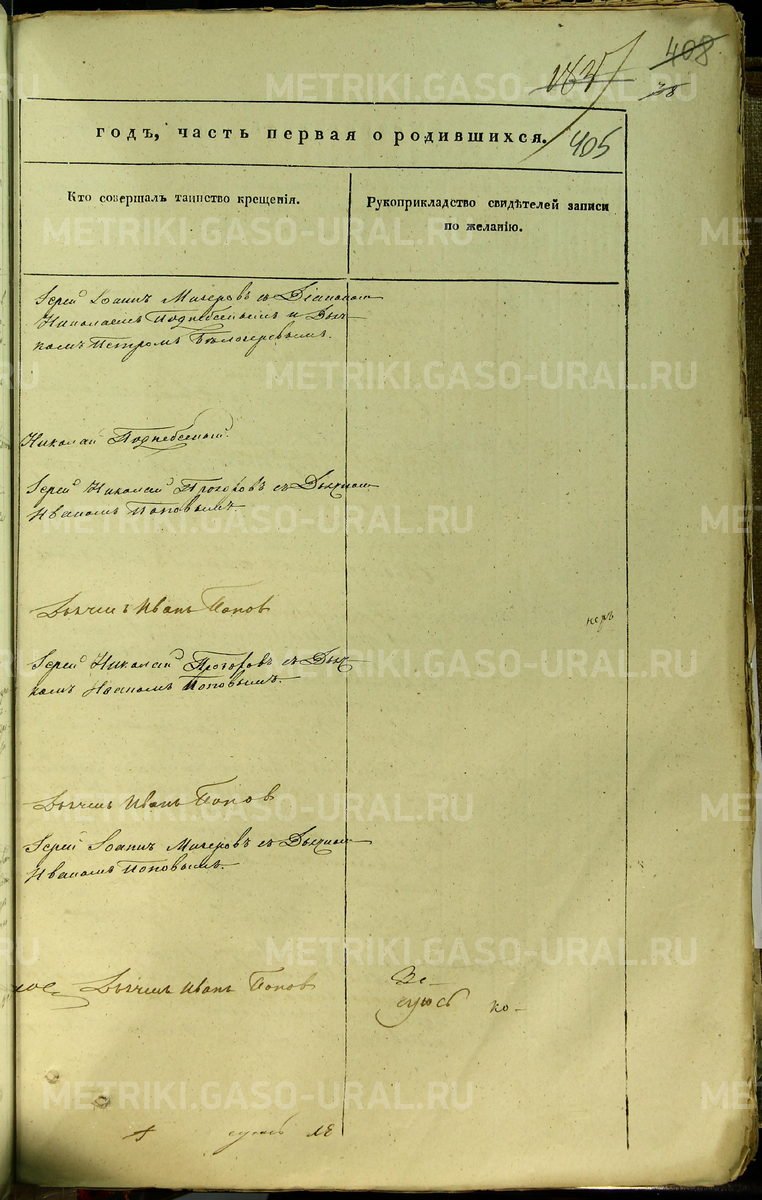 408
28
1837
405
годъ, часть первая о родившихся.
Кто совершалъ таинство крещенія.
Рукоприкладство свидѣтелей записи
по желанію.
Іерей Іоаннъ Мичеровъ съ Діакономъ
Николаемъ Поднебеснымъ и Дьяч-
комъ Петромъ Бѣлозеровымъ.
Николай Поднебесной
Іерей Николай Прозоровъ съ Дьячком
Иваномъ Поповымъ.
Дьячекъ Иванъ Попов
Іерей Николай Прозоровъ съ Дьяч-
комъ Иваномъ Поповымъ.
Дьячекъ Иванъ Попов
Іерей Іоаннъ Мичеровъ съ Дьячком
Иваномъ Поповымъ.
Дьячекъ Иванъ Попов
ко-
METRIKI.GASO-URAL.RU